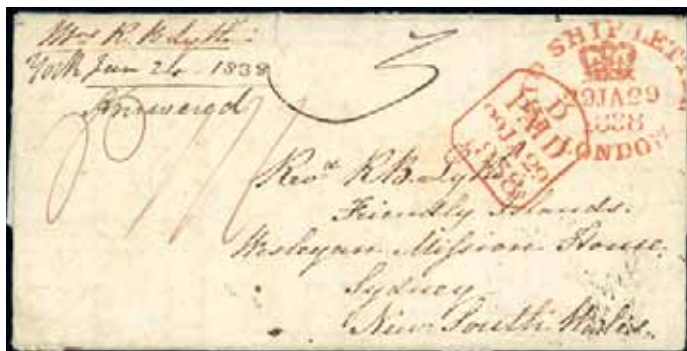 Mrs R. B. Lyth
York Jan 26 1838
Answered
3
SHIP LETTER
29JA29
1838
LONDON
PAID
Revd R. B. Lyth
Friendly Islands.
Wesleyan Mission House.
Sydney
New South Wales.